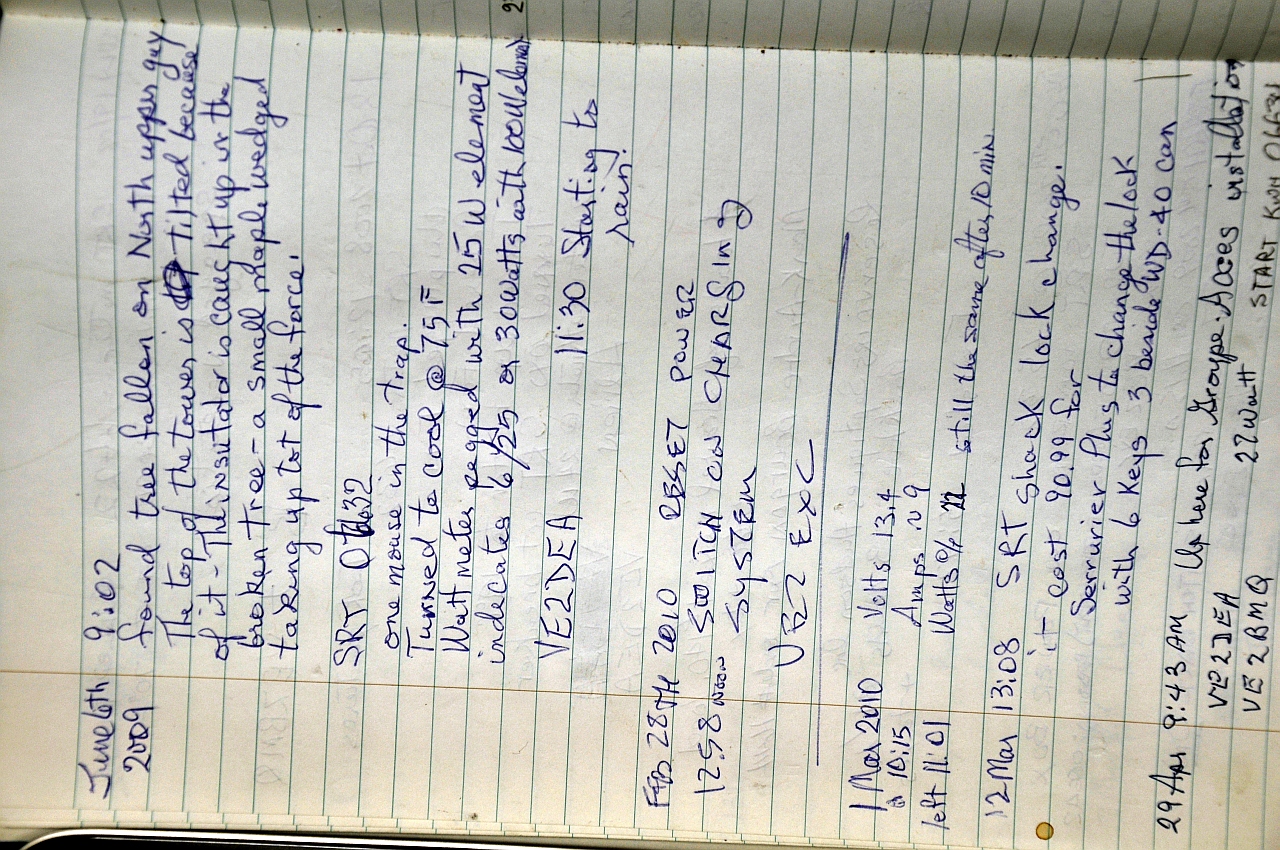 June 6th 9:02
2009 found tree fallen on North upper guy
The top of the tower is tilted because
of it - The insulator is caught up in the
broken tree - a small maple wedged
taking up lot of the force!
SRT
one mouse in the trap.
Turned to cool @ 75 F
Wattmeter pegged with 25 W element
indecates 6/25 or 30 watts with 100W element
VE2DEA 11:30 Starting to
rain.
FEB 28TH 2010 RESET POWER
12:58 noon SWITCH ON CHARGING
SYSTEM
VE2 EXC
1 Mar 2010 Volts 13.4
@ 10:15 Amps .09
left 11:01 Watts % 22 still the same after 10 min.
12 Mar 13:08 SRT Shack lock change.
it cost 90.99 for
Serrurier Plus to change the lock
with 6 Keys 3 beside WD-40 can
29 Apr 9:43 AM Up here for Groupe-Acces installation
VE2DEA
VE2BMQ 27 Watt START KWH 06631